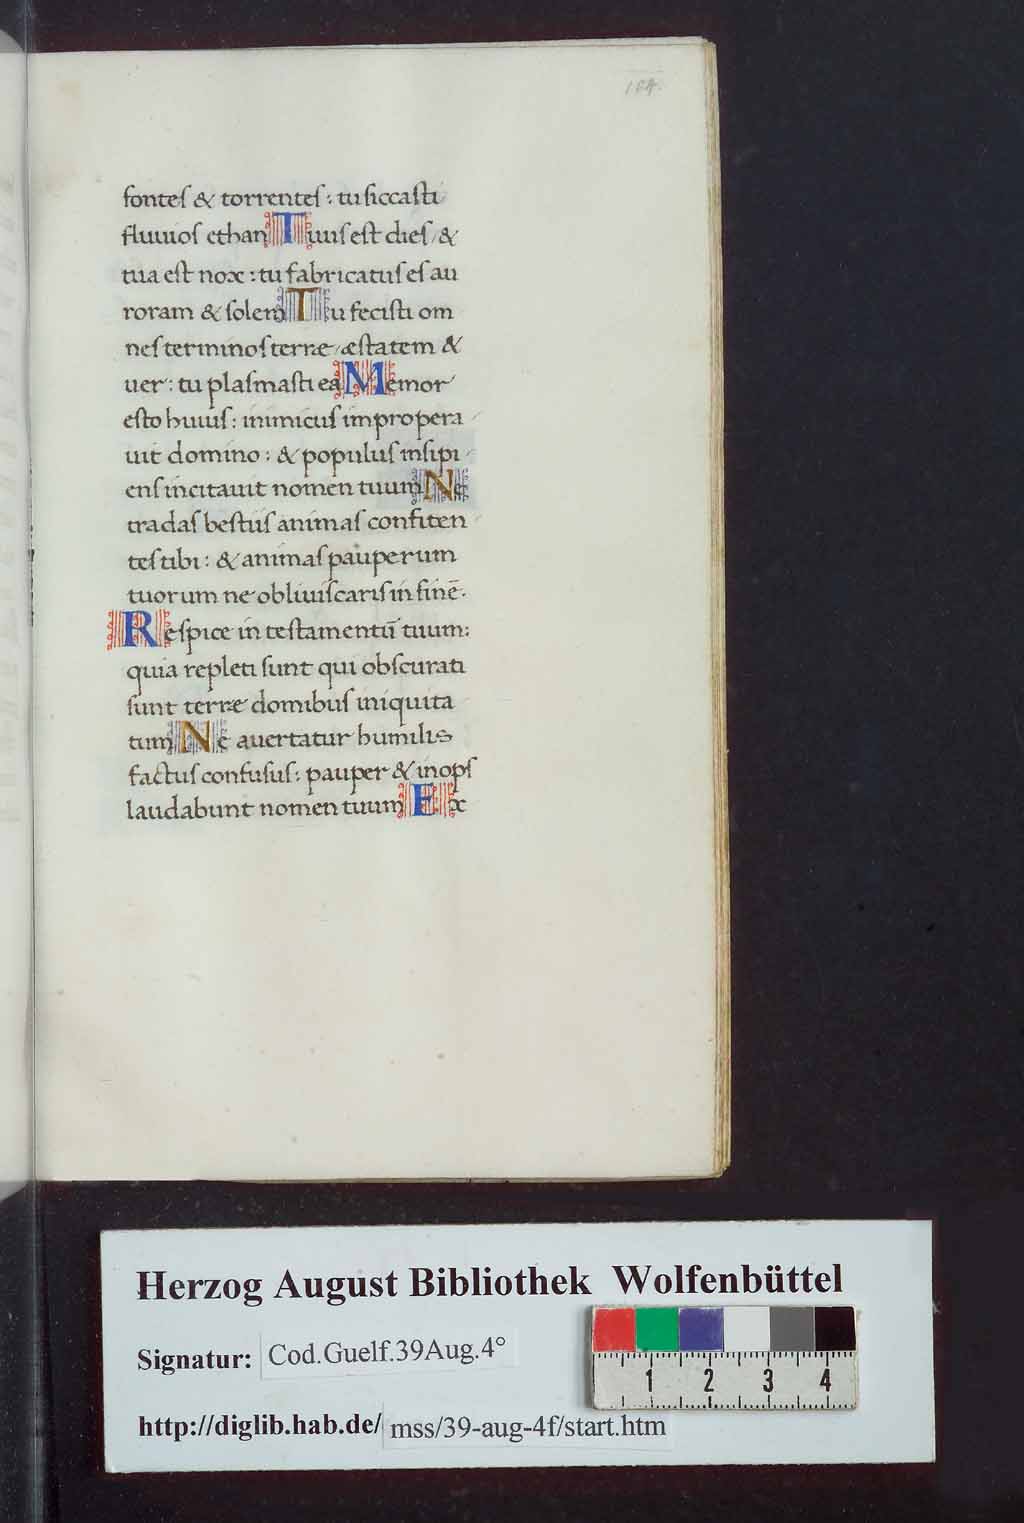 164.
fontes & torrentes: tu siccasti
fluuios ethan Tuus est dies / &
tua est nox: tu fabricatus es au
roram & solem Tu fecisti om
nes terminos terræ / æstatem &
uer: tu plasmasti ea Memor
esto huius: inimicus impropera
uit domino: & populus insipi
ens incitauit nomen tuum Ne
tradas bestiis animas confiten
tes tibi: & animas pauperum
tuorum ne obliuiscaris in finē.
Respice in testamentū tuum:
quia repleti sunt qui obscurati
sunt terræ domibus iniquita
tum Ne auertatur humilis
factus confusus: pauper & inops
laudabunt nomen tuum Ex
Herzog August Bibliothek Wolfenbüttel
Signatur: Cod.Guelf.39Aug.4°
1 2 3 4
http://diglib.hab.de/ mss/39-aug-4f/start.htm